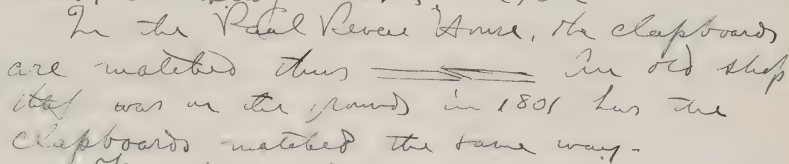 In the Paul Revere House, the clapboards
are matched thus An old shop
that was on the grounds in 1801 has the
clapboards matched the same way.